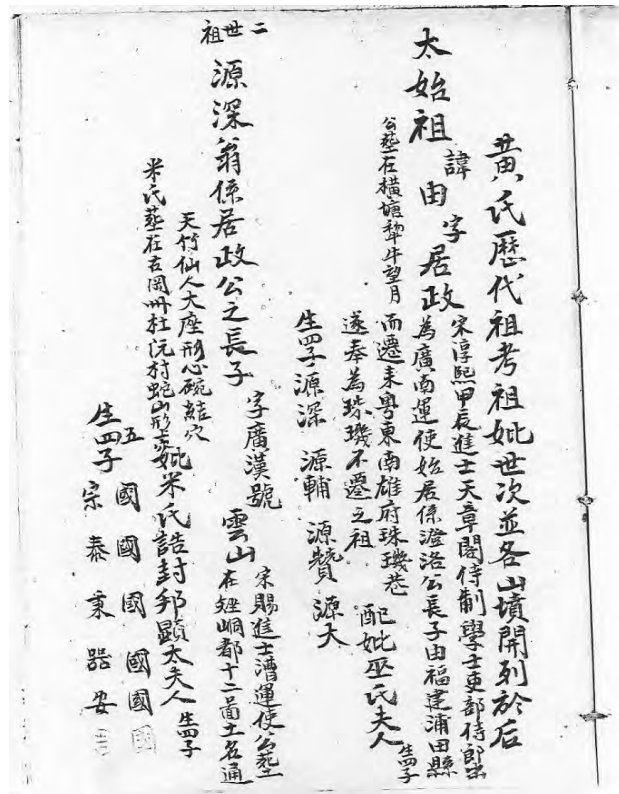 黄氏歷代祖考祖妣世次並各山墳開列於后
太始祖 諱由 字居政
宋淳熙甲辰進士天章閣侍制學士吏部侍郎出
為廣南運使始居係澄洛公長子由福建浦田縣
而遷来粤東南雄府珠璣巷 配妣巫氏夫人 生四子
遂奉為珠璣不遷之祖
公塟在橫塘犂牛望月
生四子源深 源輔 源贊 源大
二世祖 源深翁係居政公之長子 字廣漢號雲山
宋賜進士漕運使公塟
在矬峒都十二啚土名通
天竹仙人大座形心碗結穴
妣米氏誥封邦顯太夫人 生四子
米氏塟在古岡冊杜沅村蛇山形
五
生四子
國宗 國泰 國秉 國器 國安